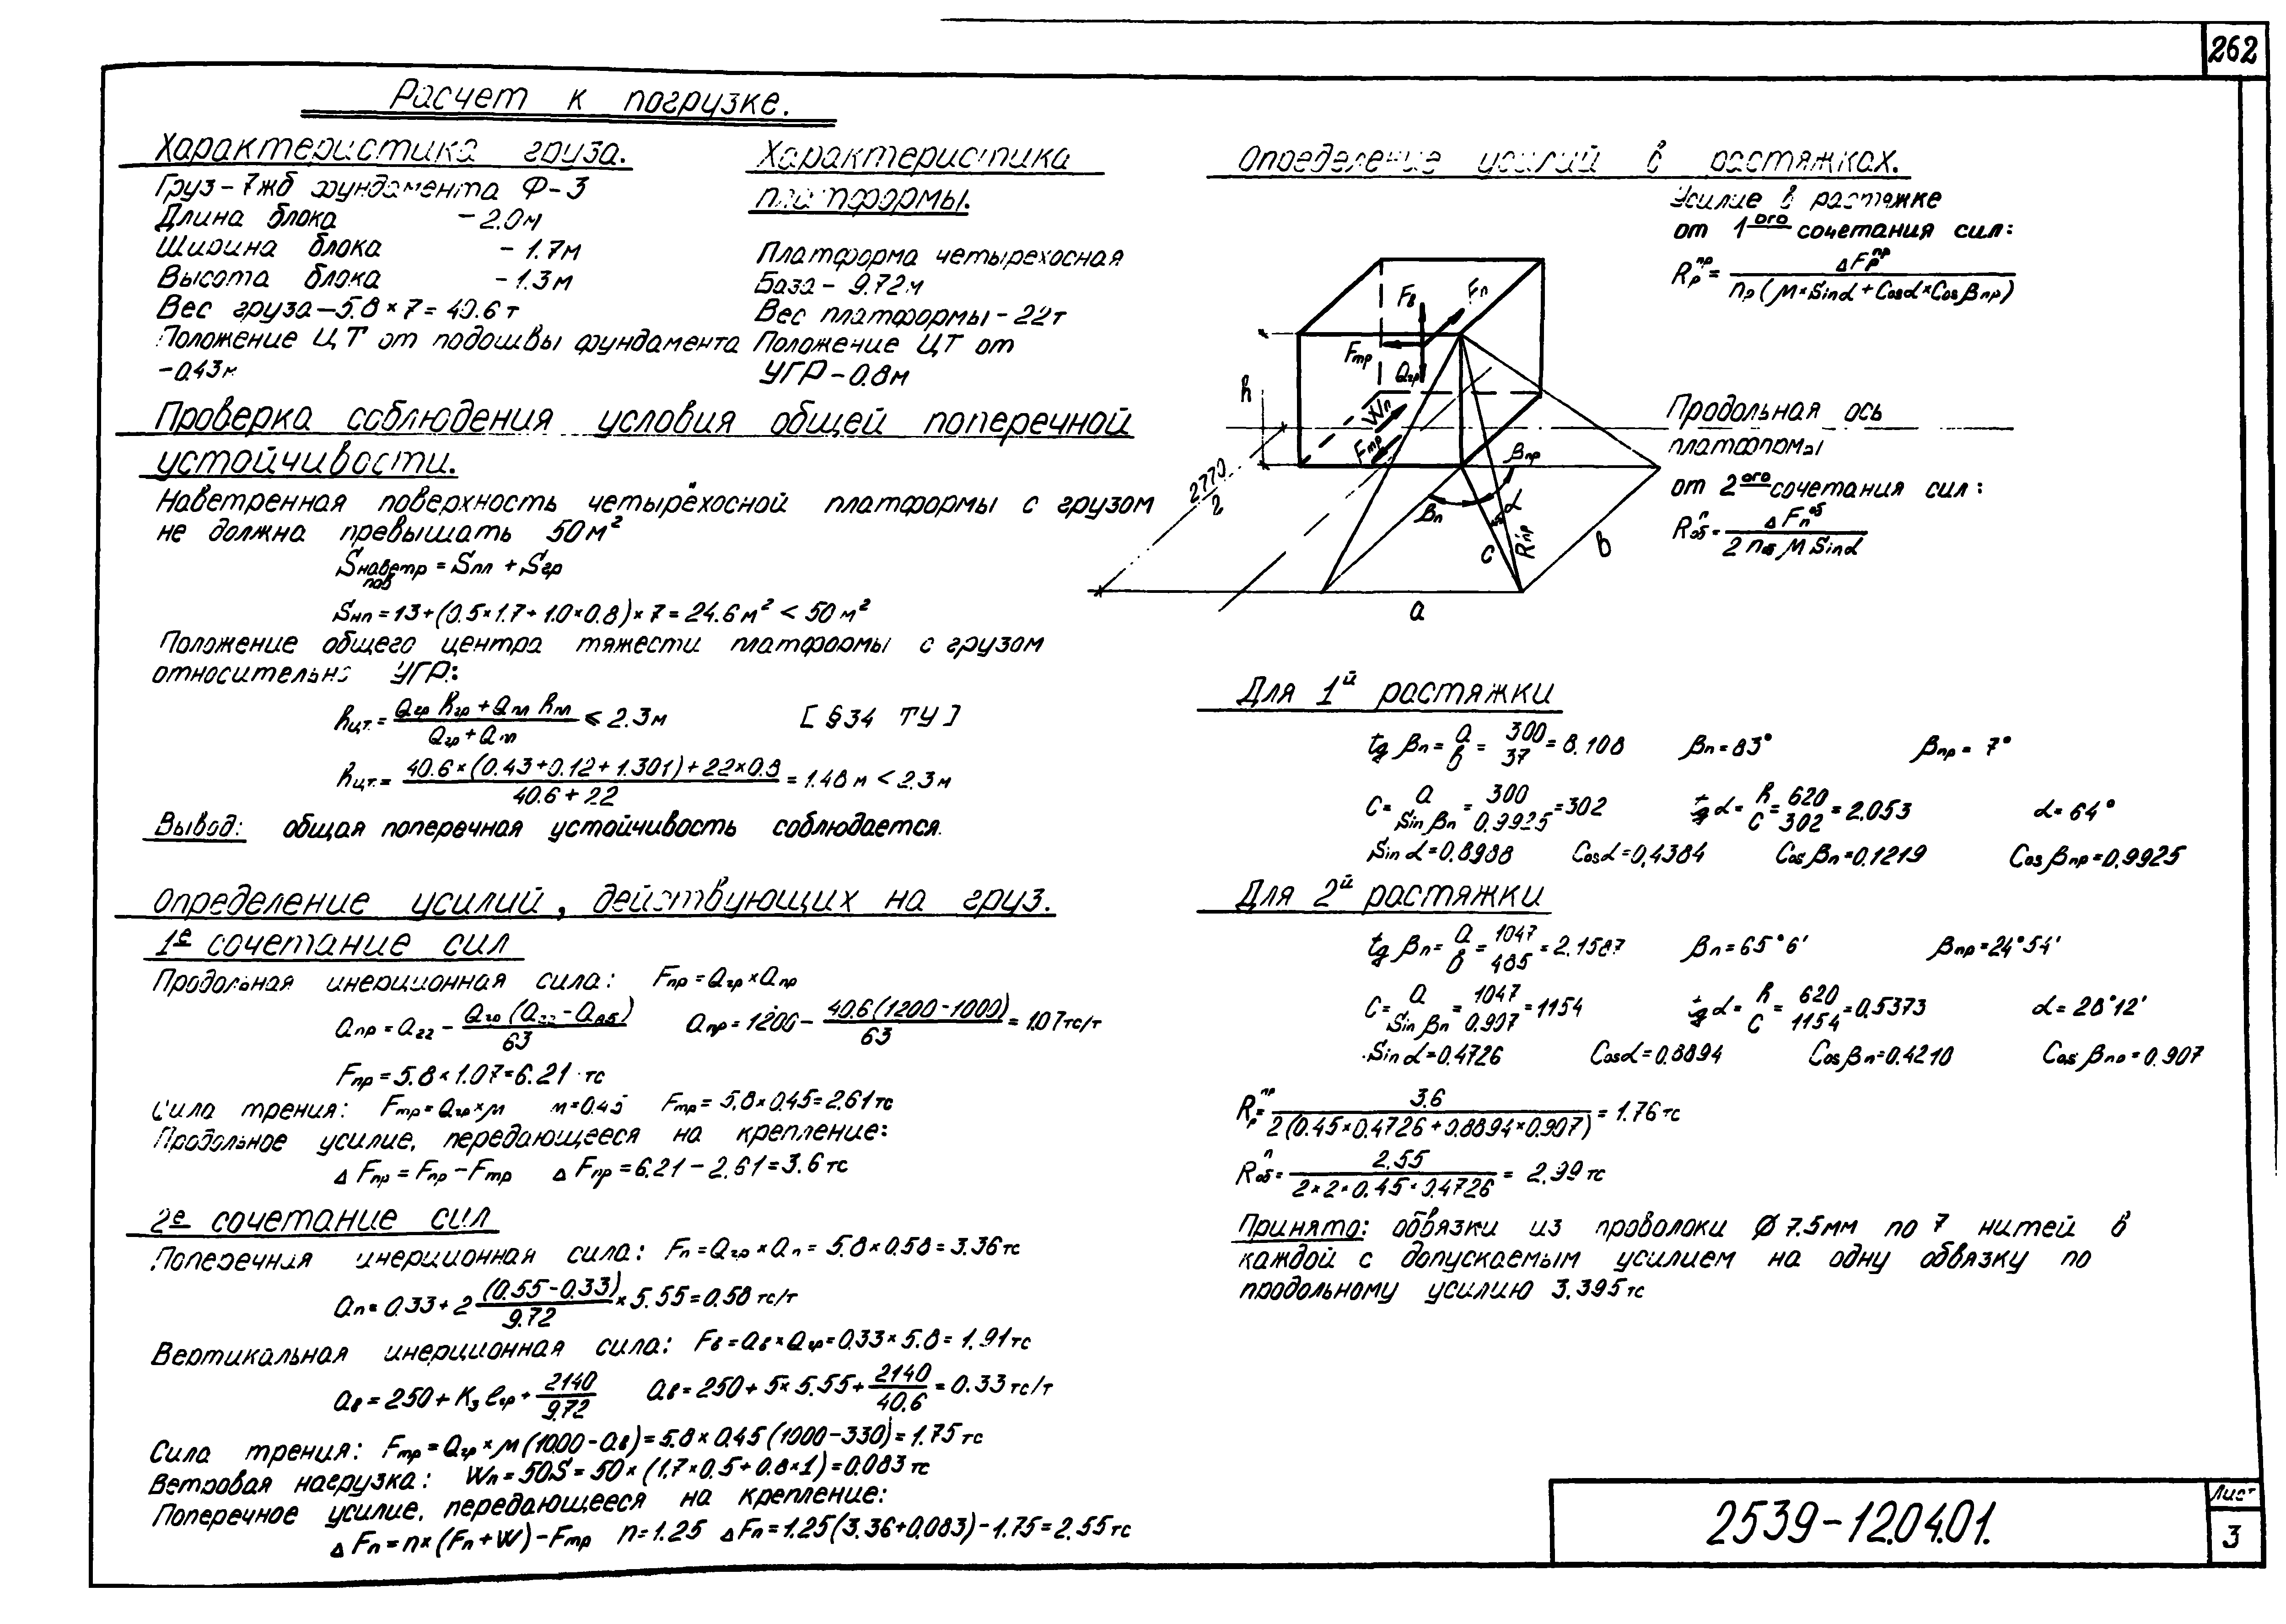 262
Расчет к погрузке.
Характеристика груза.
Груз - 7жб фундамента Ф-3
Длина блока - 2.0м
Ширина блока - 1.7м
Высота блока - 1.3м
Вес груза - 5.8 × 7 = 40.6 т
Положение ЦТ от подошвы фундамента
- 0.43м
Характеристика
платформы.
Платформа четырехосная
База - 9.72м
Вес платформы - 22т
Положение ЦТ от
УГР - 0.8м
Проверка соблюдения условия общей поперечной
устойчивости.
Наветренная поверхность четырёхосной платформы с грузом
не должна превышать 50м²
Sнаветр пов = Sпл + Sгр
Sнп = 13 + (0.5×1.7 + 1.0×0.8) × 7 = 24.6 м² < 50 м²
Положение общего центра тяжести платформы с грузом
относительно УГР:
hцт. = (Qгр hгр + Qпл hпл) / (Qгр + Qпл) ≤ 2.3м [§34 ТУ]
hцт. = (40.6 × (0.43 + 0.12 + 1.301) + 22×0.8) / (40.6 + 22) = 1.48 м < 2.3м
Вывод: общая поперечная устойчивость соблюдается.
Определение усилий, действующих на груз.
1е сочетание сил
Продольная инерционная сила: Fпр = Qгр × aпр
aпр = a22 - Qгр (a22 - a85) / 63 aпр = 1200 - 40.6 (1200 - 1000) / 63 = 1.07 тс/т
Fпр = 5.8 × 1.07 = 6.21 тс
Сила трения: Fтр = Qгр × м м = 0.45 Fтр = 5.8 × 0.45 = 2.61 тс
Продольное усилие, передающееся на крепление:
Δ Fпр = Fпр - Fтр Δ Fпр = 6.21 - 2.61 = 3.6 тс
2е сочетание сил
Поперечная инерционная сила: Fп = Qгр × aп = 5.8 × 0.58 = 3.36 тс
aп = 0.33 + 2 (0.55 - 0.33) / 9.72 × 5.55 = 0.58 тс/т
Вертикальная инерционная сила: Fв = aв × Qгр = 0.33 × 5.8 = 1.91 тс
aв = 250 + K3 lгр + 2140 / 9.72 aв = 250 + 5 × 5.55 + 2140 / 40.6 = 0.33 тс/т
Сила трения: Fтр = Qгр × м (1000 - aв) = 5.8 × 0.45 (1000 - 330) = 1.75 тс
Ветровая нагрузка: Wп = 50S = 50 × (1.7×0.5 + 0.8×1) = 0.083 тс
Поперечное усилие, передающееся на крепление:
Δ Fп = n × (Fп + W) - Fтр n = 1.25 Δ Fп = 1.25 (3.36 + 0.083) - 1.75 = 2.55 тс
Определение усилий в растяжках.
Усилие в растяжке
от 1ого сочетания сил:
Rрпр = ΔFрпр / nр (м × Sinα + Cosα × Cos βпр)
Fв
Fп
Fтр
Qгр
h
Wп
Fтр
2770/2
βпр
βп
α
c
Rпр
в
a
Продольная ось
платформы
от 2ого сочетания сил:
Rобп = ΔFпоб / 2 nоб м Sinα
Для 1й растяжки
tg βп = a/в = 300/37 = 8.108 βп = 83° βпр = 7°
c = a / Sin βп = 300 / 0.9925 = 302 tg α = h/c = 620/302 = 2.053 α = 64°
Sin α = 0.8988 Cosα = 0.4384 Cos βп = 0.1219 Cos βпр = 0.9925
Для 2й растяжки
tg βп = a/в = 1047/485 = 2.1587 βп = 65°6' βпр = 24°54'
c = a / Sin βп = 1047 / 0.907 = 1154 tg α = h/c = 620/1154 = 0.5373 α = 28°12'
Sin α = 0.4726 Cosα = 0.8894 Cos βп = 0.4210 Cos βпр = 0.907
Rрпр = 3.6 / 2 (0.45 × 0.4726 + 0.8894 × 0.907) = 1.76 тс
Rобп = 2.55 / 2 × 2 × 0.45 × 0.4726 = 2.99 тс
Принято: обвязки из проволоки Ø 7.5мм по 7 нитей в
каждой с допускаемым усилием на одну обвязку по
продольному усилию 3.395 тс
2539-12.04.01.
Лист
3